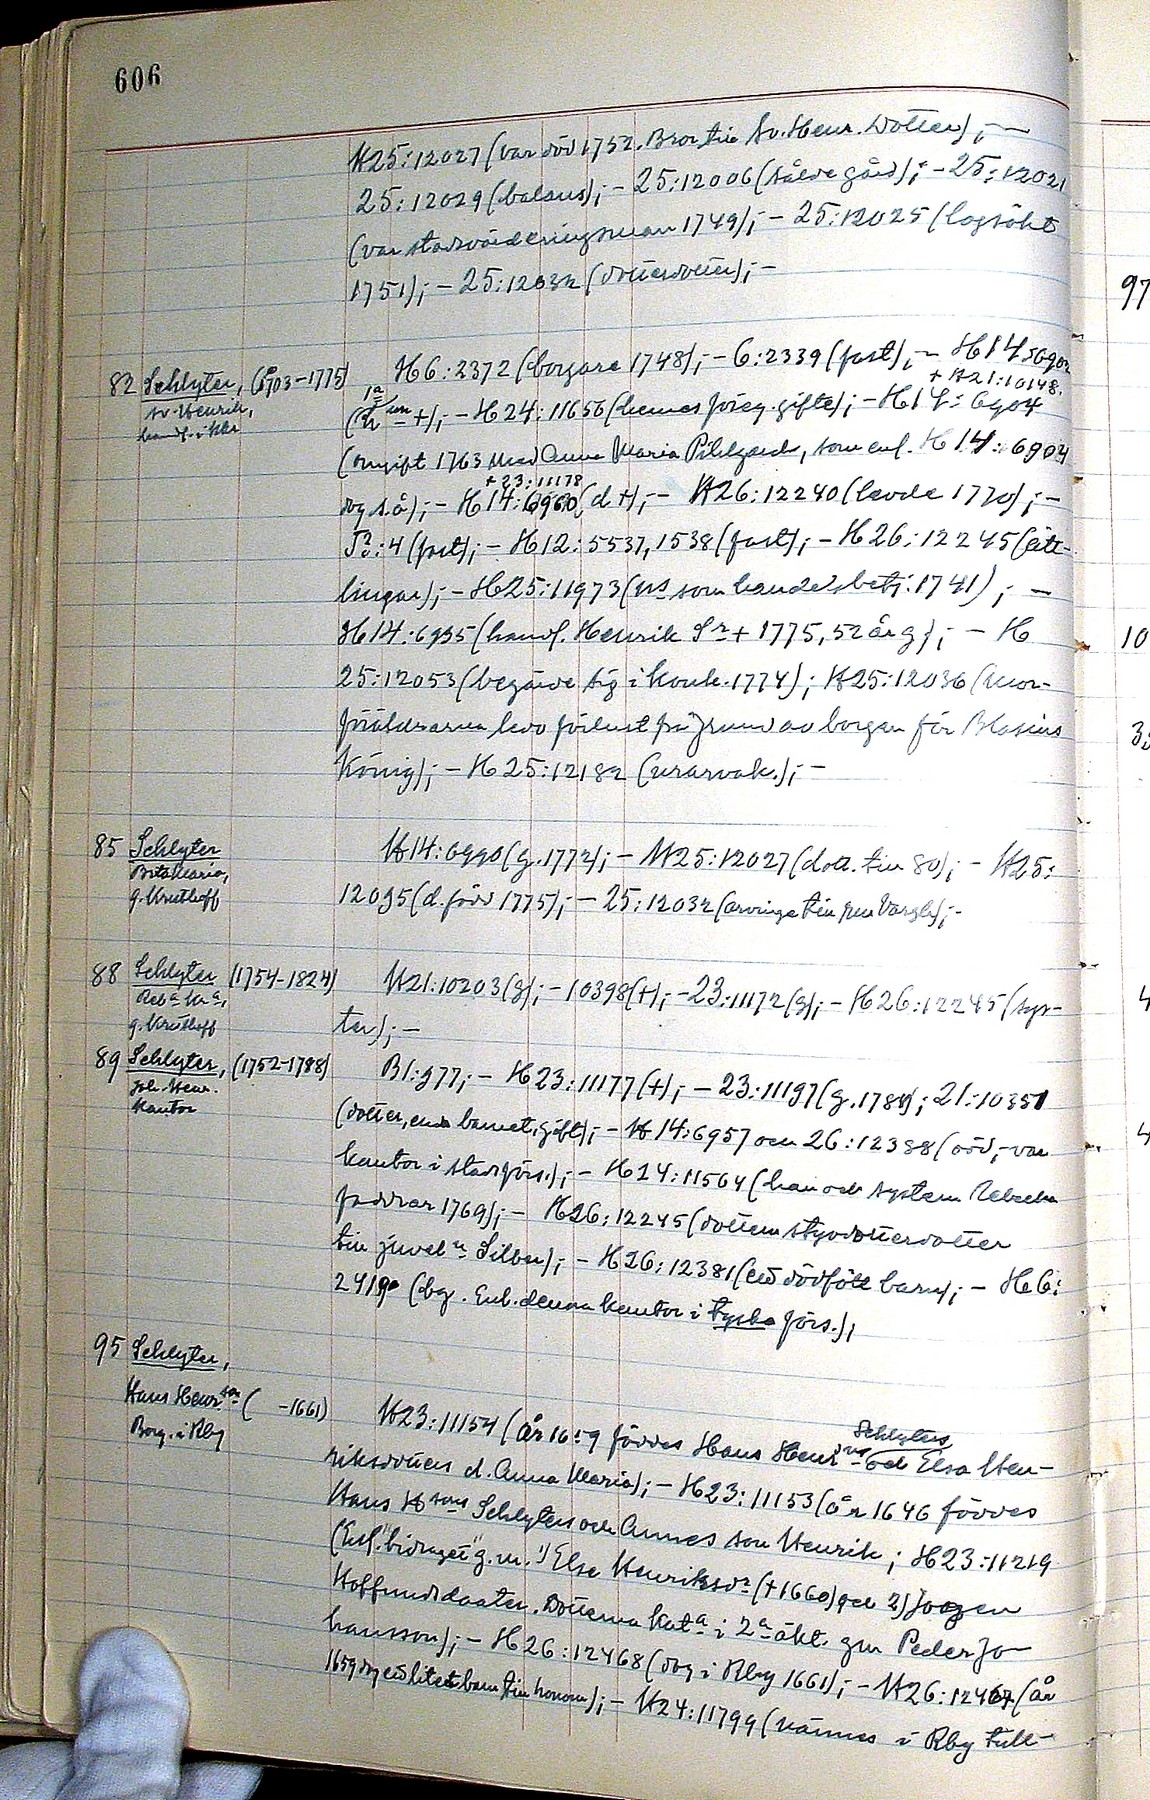 606
H25:12027 (var död 1752. Bror till Sv. Henr. Dotter); —
25:12029 (balans); – 25:12006 (sålde gård); – 25:12021
(var stadsvärderingsman 1749); – 25:12025 (lagsökt
1751); – 25:12032 (dotterdotter); –
97
82 Schlyter, (1703–1775) H6:2372 (borgare 1748); – 6:2339 (fast); – H14:
Sv. Henrik,
handl. i Kkr
+ H21:10148.
+); – H24:11656 (hennes föreg. gifte); – H14:6904
(omgift 1763 med Anna Maria Pihlgard, som enl. H14:6904
+ 23:11178
dog s.å); – H14:6960 (d +); – H26:12240 (levde 1770); –
4 (fast); – H12:5537, 1538 (fast); – H26:12245 (ätt-
lingar); – H25:11973 (ns som handelsbetj. 1741); –
H14:6935 (handl. Henrik Sr + 1775, 52 år g); – H
10
25:12053 (begärde sig i konk. 1774); H25:12036 (mor-
föräldrarna led förlust på grund av borgen för Blasius
König); – H25:12182 (urarvak.); –
85 Schlyter H14:6990 (g. 1772); – H25:12027 (dott. till 80); – H25:
Brita Maria,
g. Kruthoff
12095 (d. född 1775); – 25:12032 (arvinge till
88 Schlyter (1754–1824) H21:10203 (g); – 10398 (+); – 23:11172 (g); – H26:12245 (sys-
g. Kruthoff
ter); –
4
89 Schlyter, (1752–1788) B1:977; – H23:11177 (+); – 23:11197 (g. 1784); 21:10351
Joh. Henr.
Kantor
(dotter, enda barnet, gift); – H14:6957 och 26:12388 (död, var
4
kantor i stadsförs.); – H24:11564 (han och systern Rebecka
faddrar 1769); – H26:12245 (dottern styvdotterdotter
till juvel Silber); – H26:12381 (ett dödfött barn); – H6:
2419 (bg. Enl. denna kantor i tyska förs.);
95 Schlyter,
Hans Henr.son ( –1661)
Borg. i Rby
H23:11154 (år 1659 föddes Hans Henr. Schlyters och Elsa Hen-
riksdotters d. Anna Maria); – H23:11153 (år 1646 föddes
Hans Hsons Schlyters och Annas son Henrik; H23:11219
(Enl. "bidraget" g. m. 1) Elsa Henriksdr (+1660) och 2) Joogen
Hoffundsdaater. Döttrarna Kata i 2a äkt. gm Peder Jo-
hansson); – H26:12468 (dog i Rby 1661); – H26:12467 (år
1659 dog ett litet barn till honom); – H24:11799 (nämnes i Rby tull-